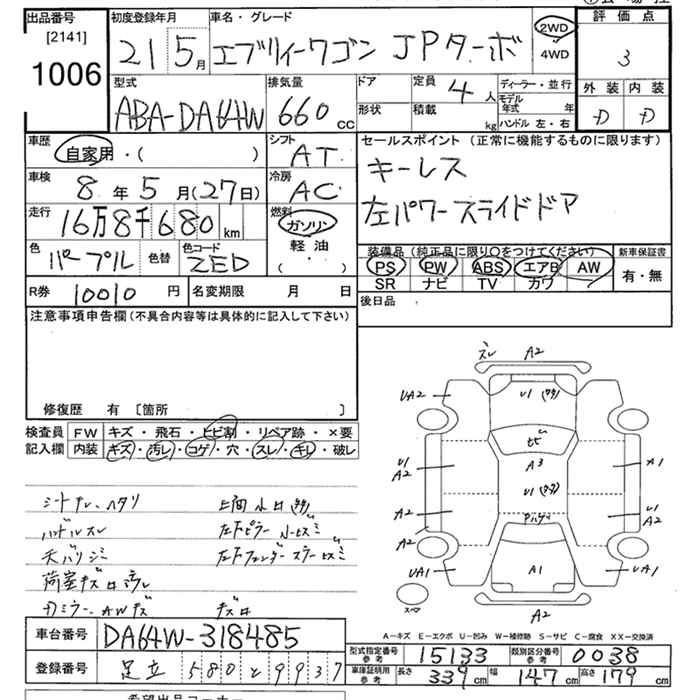 出品番号 初度登録年月 車名・グレード 評価点
[2141]
1006
21 5月 エブリイワゴン JPターボ 2WD 4WD 3
外装 内装
D D
型式 排気量 ドア 定員 ディーラー・並行
ABA-DA64W 660cc 4人 モデル年式 年
形状 積載 kg ハンドル 左・右
車歴 シフト セールスポイント (正常に機能するものに限ります)
自家用・( ) AT キーレス
車検 冷房
8年5月(27日) AC 左パワースライドドア
走行 燃料
16万8千680km ガソリン
軽油
( ・ )
色 色替 色コード
パープル ZED
装備品 (純正品に限り○をつけてください) 新車保証書
PS PW ABS エアB AW 有・無
SR ナビ TV カワ
R券 10010円 名変期限 月 日 後日品
注意事項申告欄 (不具合内容等は具体的に記入して下さい)
修復歴 有 〔箇所 〕
検査員 FW キズ・飛石・ヒビ割・リペア跡・×要
記入欄 内装 キズ・汚レ・コゲ・穴・スレ・キレ・破レ
ズレ A2
UA2 U1
ヒビ
U1 A2 A3 A1
U1
A2 U1 A2
A2
UA1 A1 UA1
スペア
A2
ハンドルスレ
天バリシミ
Dミラー、AWキズ
A-キズ E-エクボ U-凹み W-補修跡 S-サビ C-腐食 XX-交換済
車台番号 DA64W-318485
登録番号 足立 580 と 9937
型式指定番号 参考 15133 類別区分番号 参考 0038
車庫証明用 参考 長さ 339cm 幅 147cm 高さ 179cm
希望出品コーナー